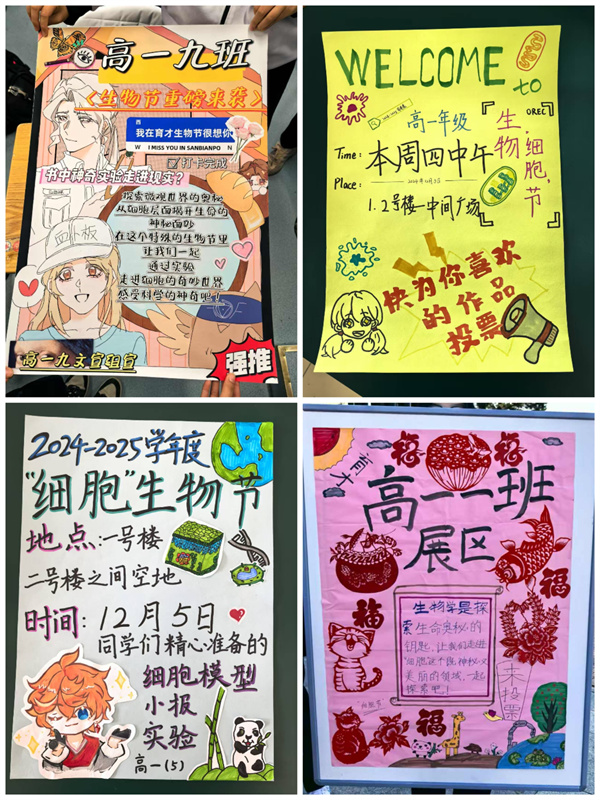 高一九班
<生物节重磅来袭>
西
我在育才生物节很想你
W I MISS YOU IN SANBIANPO N
打卡完成
书中神奇实验走进现实?
探索微观世界的奥秘
从细胞层面揭开生命的
神秘面纱
在这个特殊的生物节里
让我们一起
通过实验
走进细胞的奇妙世界
感受科学的神奇吧!
血小板
高一九文宣组宣
强推
WELCOME
to
OREC
生物,细胞,节
高一年级
Time:
本周四中午
Place:
1.2号楼一中间广场
快为你喜欢
的作品
投票
2024-2025学年度
"细胞"生物节
地点:一号楼
二号楼之间空地
时间:12月5日
同学们精心准备的
细胞模型
小报
实验
高一(5)
育才
福
福
高一一班
展区
福
福
福
生物学是探
索生命奥秘的
钥匙,让我们走进
"细胞这个既神秘又
美丽的领域,一起
探索吧!
来投票